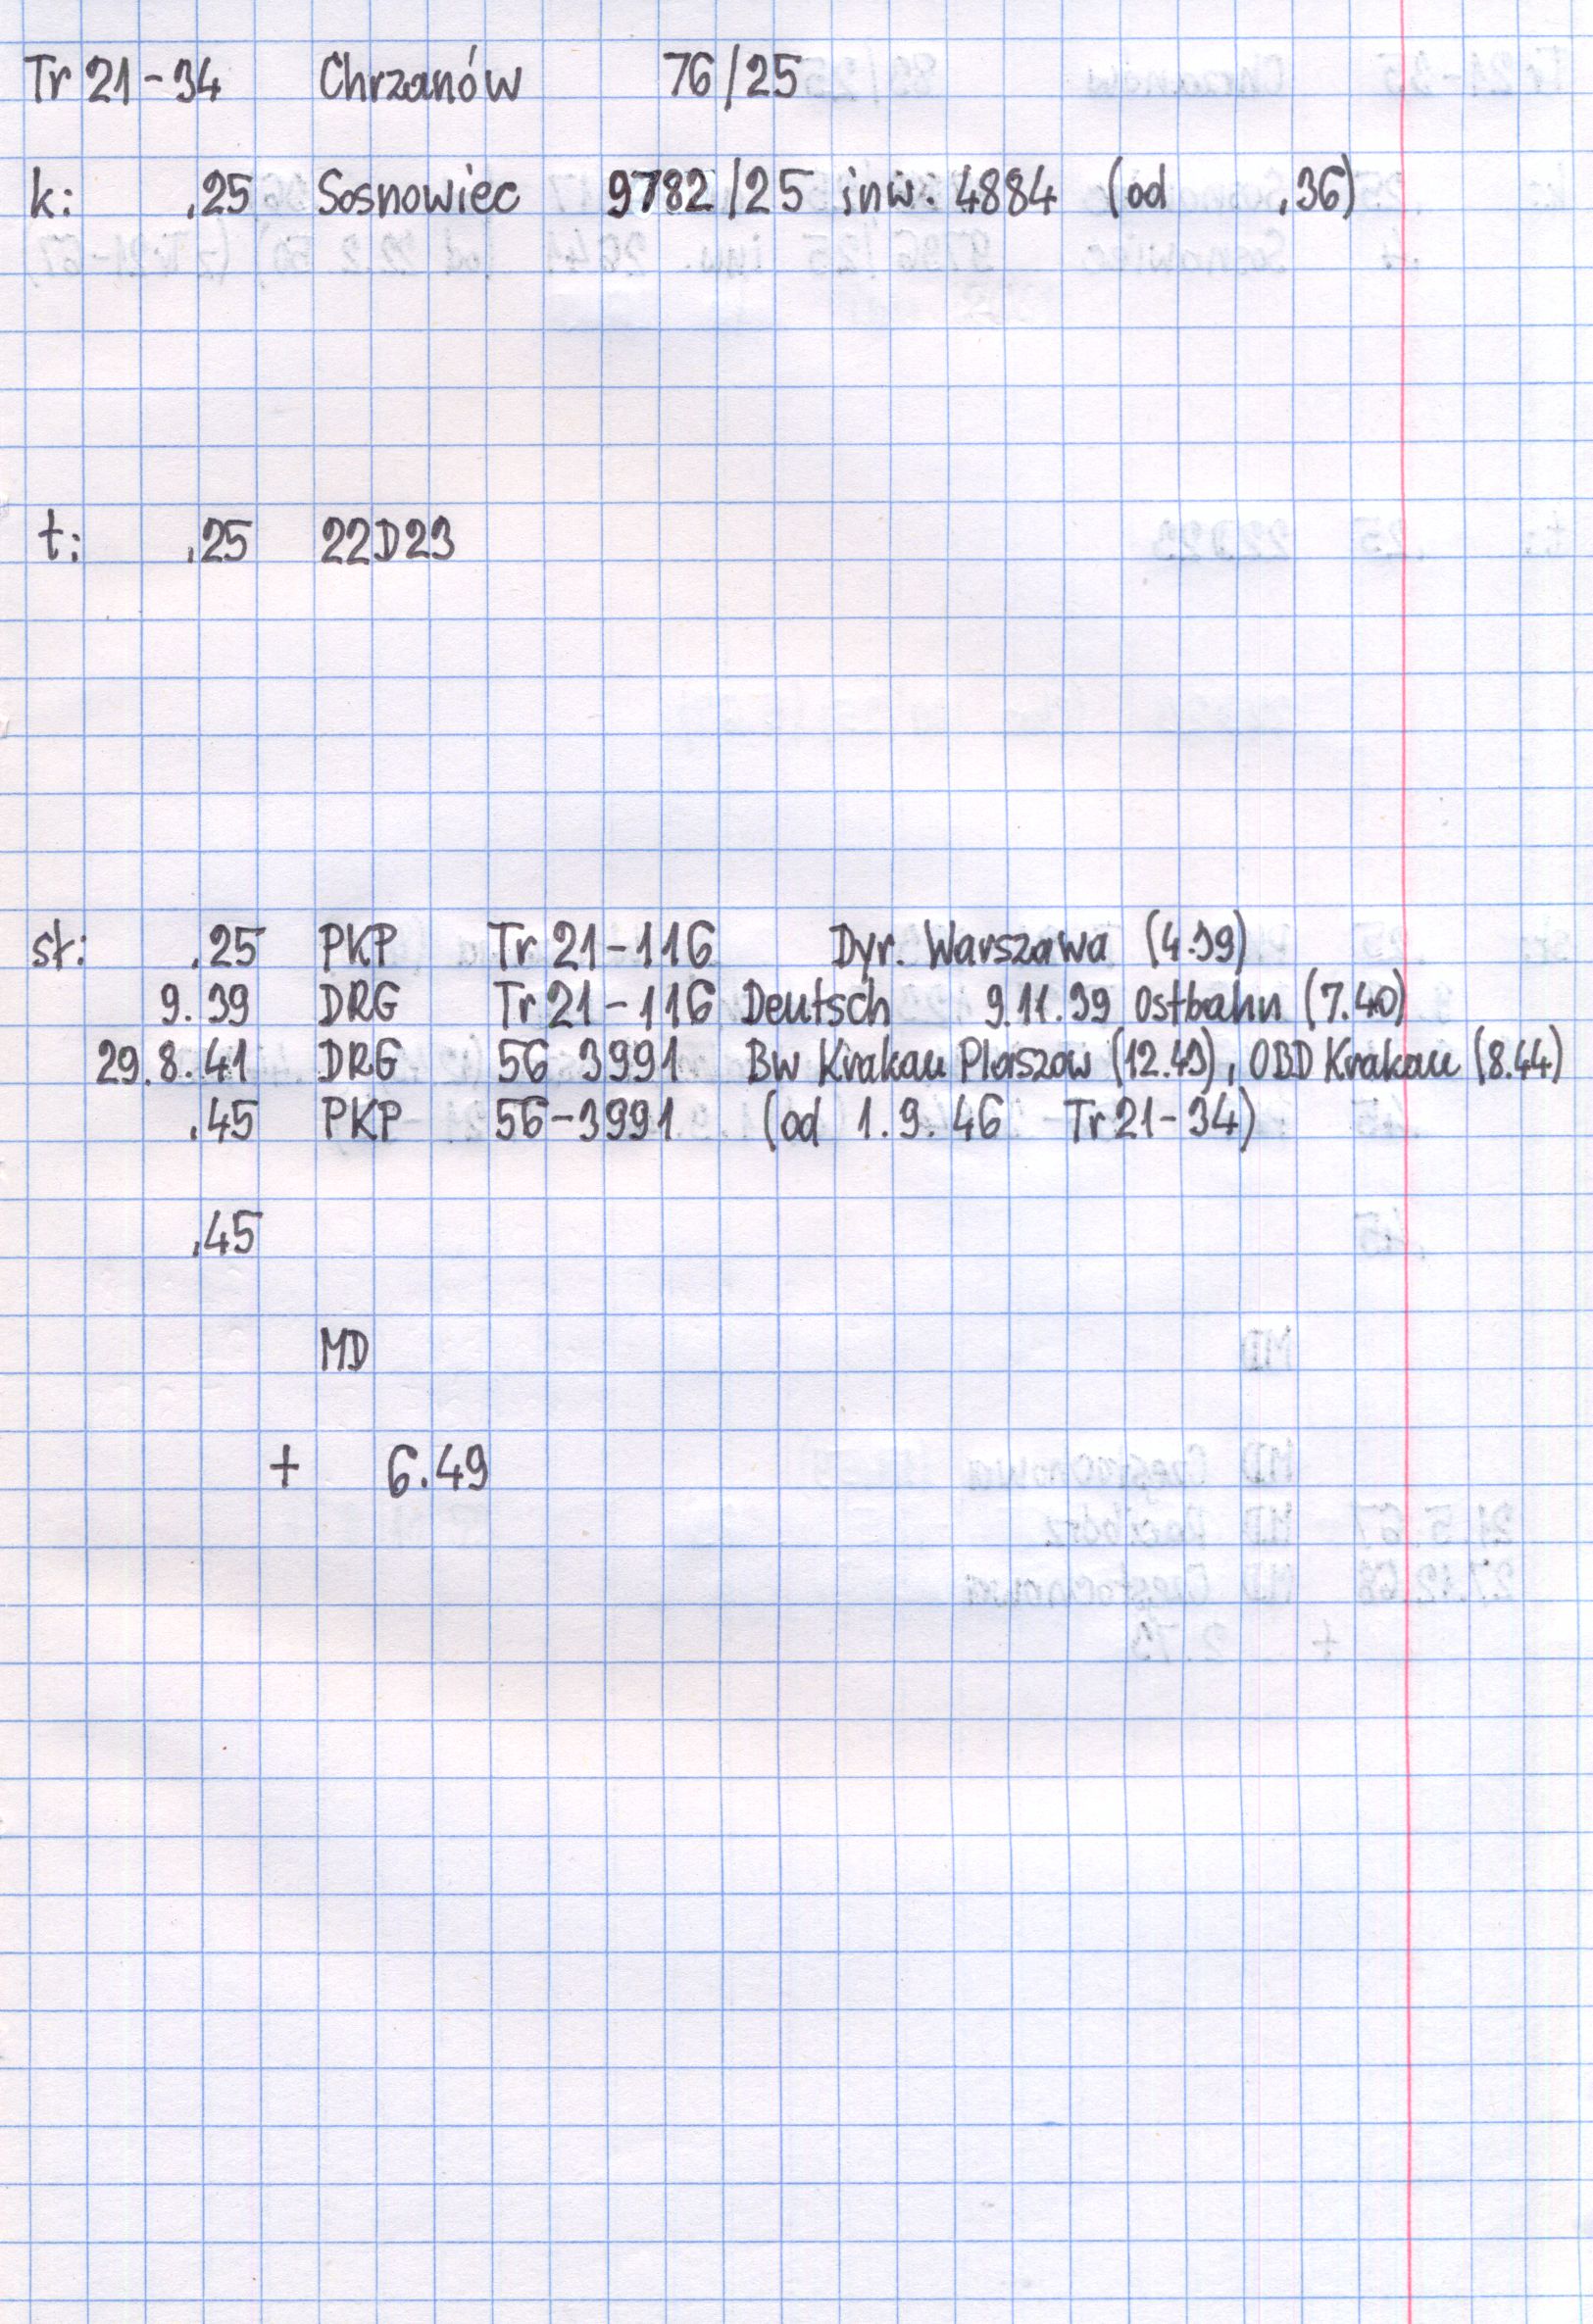 Tr 21-34 Chrzanów 76/25
k: .25 Sosnowiec 9782/25 inw. 4884 (od .36)
t: .25 22D23
st: .25 PKP Tr 21-116 Dyr. Warszawa (4.39)
9.39 DRG Tr 21-116 Deutsch 9.11.39 Ostbahn (7.40)
29.8.41 DRG 56 3991 Bw Krakau Plaszow (12.43), OBD Krakau (8.44)
.45 PKP 56-3991 (od 1.9.46 Tr 21-34)
.45
MD
+ 6.49